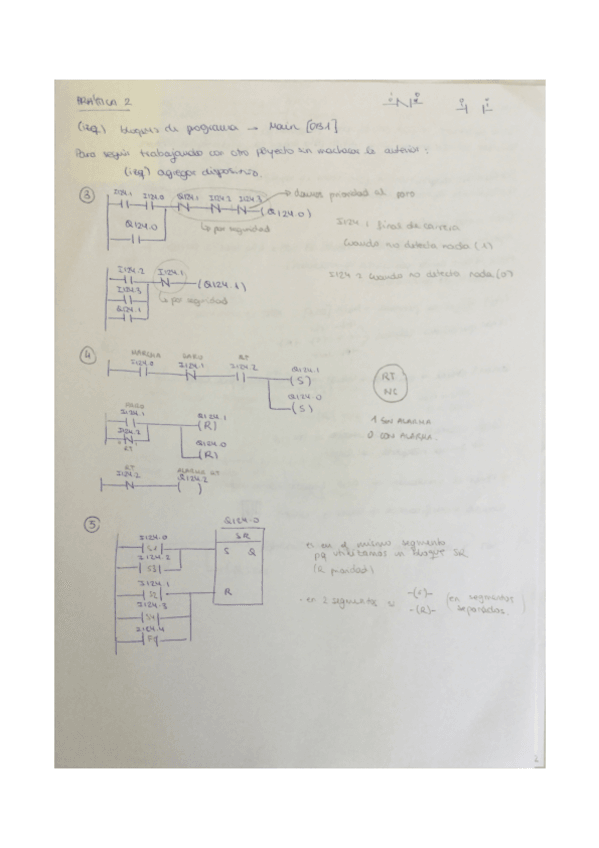 PRÁCTICA 2
(izq.) bloques de programa → Main [OB1]
Para seguir trabajando con otro proyecto sin machacar el anterior:
(izq) agregar dispositivo.
③
I124.1 I124.0 Q124.1 I124.2 → damos prioridad al paro
(Q124.0)
Q124.0 ↳ por seguridad
I124.1 final de carrera
cuando no detecta nada (1)
I124.2 cuando no detecta nada (0)
I124.2 I124.1
(Q124.1)
I124.3
↳ por seguridad
Q124.1
④
MARCHA PARO RT
I124.0 I124.1 I124.2 Q124.1
(S)
Q124.0
(S)
RT
NC
1 SIN ALARMA
0 CON ALARMA
PARO
I124.1 Q124.1
(R)
I124.2 Q124.0
RT (R)
RT ALARMA RT
I124.2 Q124.2
( )
⑤
Q124.0
I124.0 SR
S1 S Q
I124.2
S3
I124.1
S2 R
I124.3
S4
I124.4
en el mismo segmento
pq utilizamos un bloque SR
(R prioridad)
- en 2 segmentos si -(S)- (en segmentos
-(R)- separados)
2